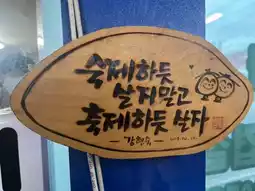 숙제하듯
살지말고
축제하듯 살자